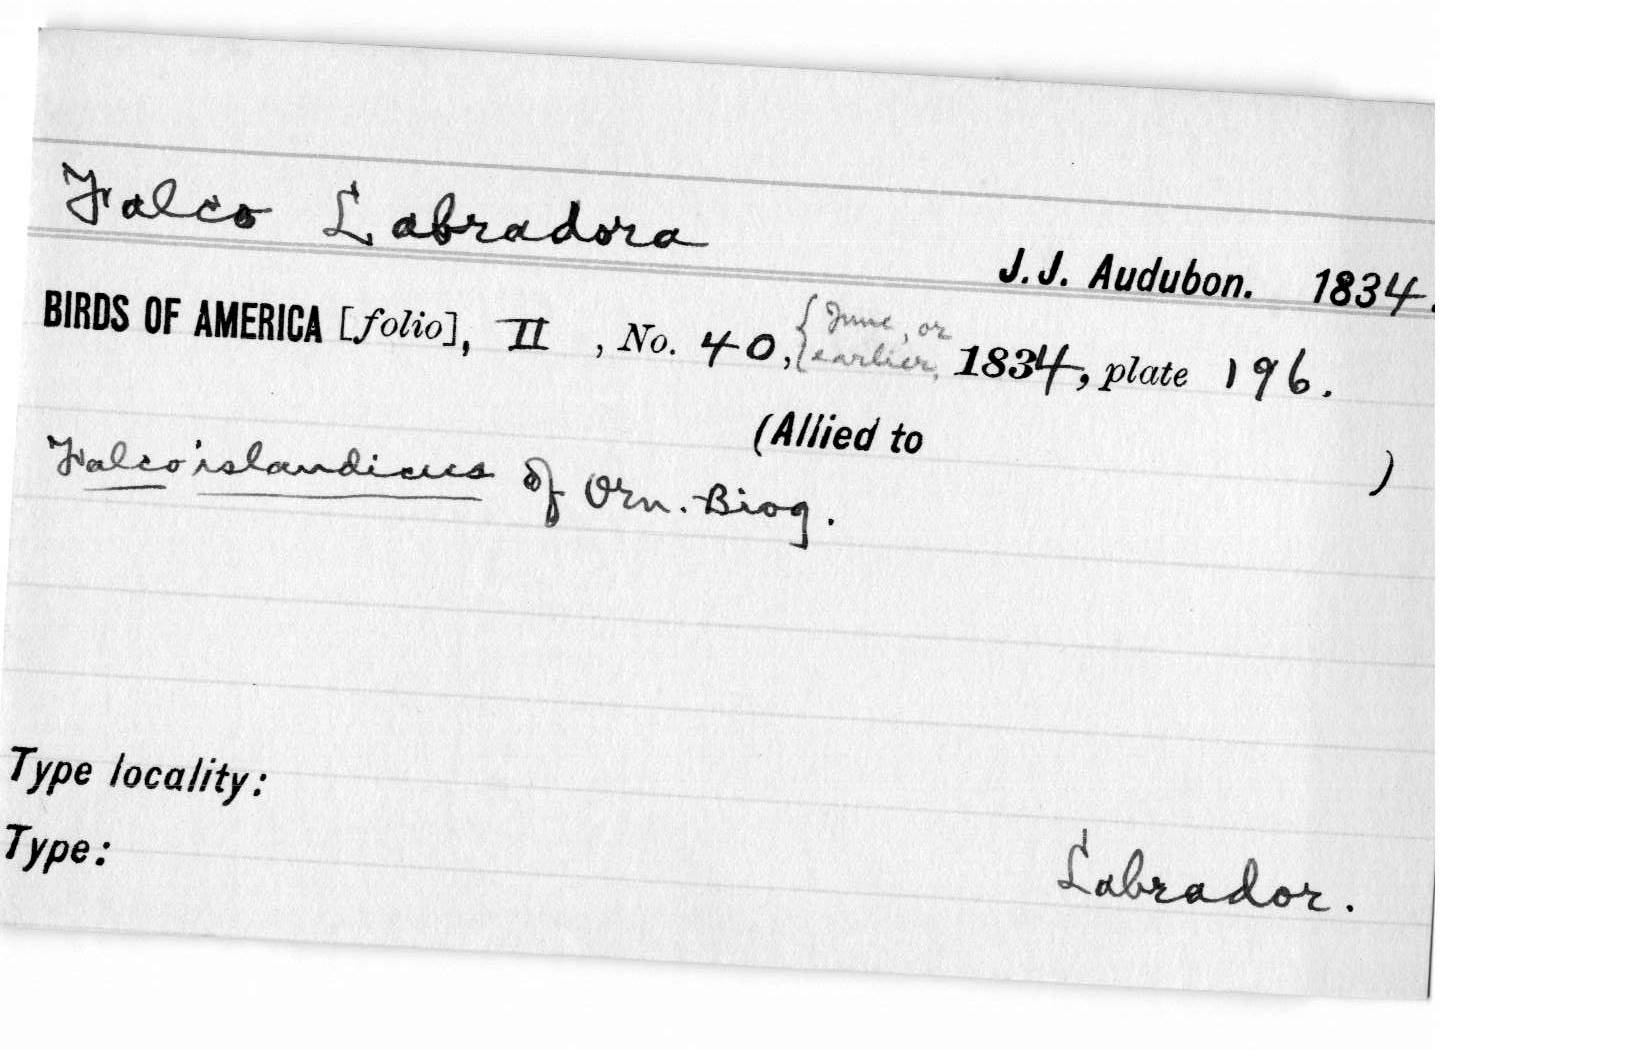 Falco Labradora
J.J. Audubon. 1834.
BIRDS OF AMERICA [folio], II, No. 40, {June, or earlier, 1834, plate 196.
(Allied to )
Falco islandicus of Orn. Biog.
Type locality:
Type:
Labrador.